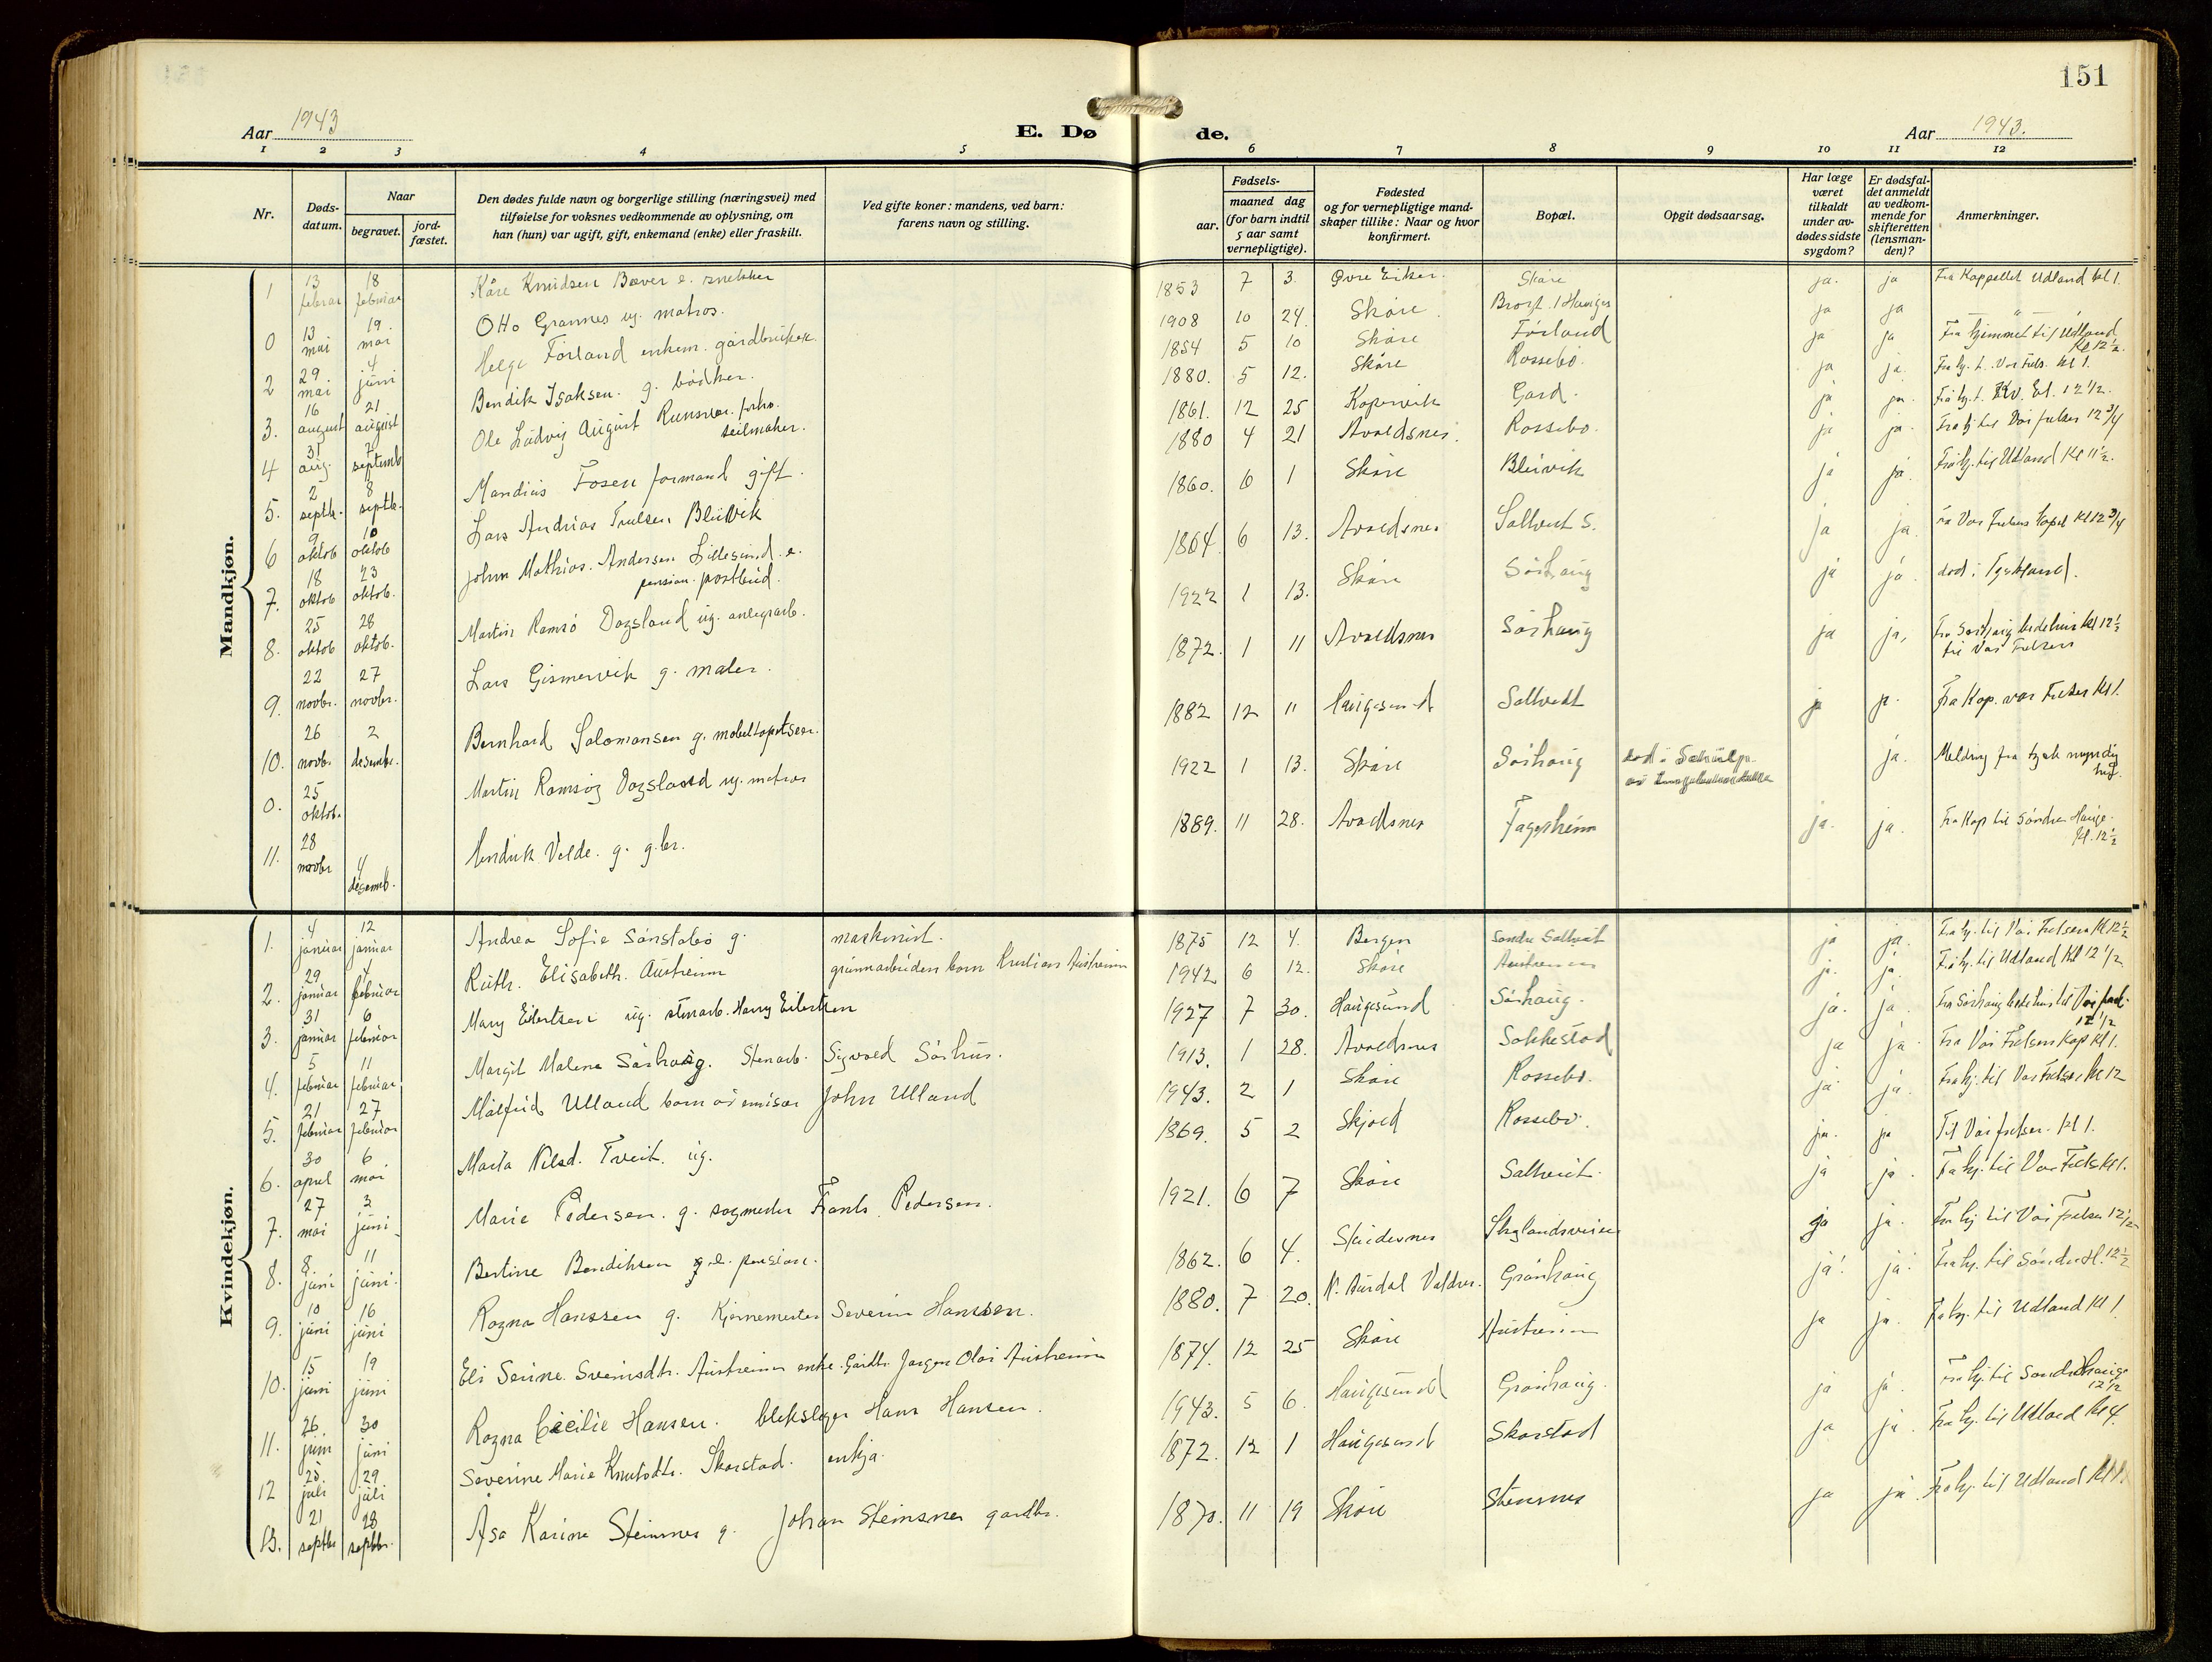 151
Aar 1943
E. Dø de.
Aar 1943.
1 2 3 4 5 6 7 8 9 10 11 12
Nr.
Døds-
datum.
Naar
begravet.
jord-
fæstet.
Den dødes fulde navn og borgerlige stilling (næringsvei) med
tilføielse for voksnes vedkommende av oplysning, om
han (hun) var ugift, gift, enkemand (enke) eller fraskilt.
Ved gifte koner: mandens, ved barn:
farens navn og stilling.
Fødsels-
aar.
maaned dag
(for barn indtil
5 aar samt
vernepligtige).
Fødested
og for vernepligtige mand-
skaper tillike: Naar og hvor
konfirmert.
Bopæl.
Opgit dødsaarsag.
Har læge
været
tilkaldt
under av-
dødes sidste
sygdom?
Er dødsfal-
det anmeldt
av vedkom-
mende for
skifteretten
(lensman-
den)?
Anmerkninger.
Mandkjøn.
1 13 februar 18 februar Kåre Knudsen Bæver e. snekker 1853 7 3. Øvre Eiker. Skåre ja. ja Fra Kappellet Udland kl 1.
0 13 mai 19. mai Otto Grannes ug. matros. 1908 10 24 Skåre. ja ja — " —
2 29. mai 4 juni Helge Førland enkem. gårdbruker 1854 5 10 Skåre Førland ja ja Fra hjemmet til Udland
Kl 12½.
3. 16 august 21 august Bendik Isaksen. g. bødker. 1880. 5 12. Skåre Rossebø. ja ja. Fra hj. t. Vor Frels. Kl 1.
4 31 aug. 7 septemb Ole Ludvig August 1861. 12 25 Kopervik Gard. ja ja
seilmaker.
5. 2 septb. 8 septb. Mandius Fosen formand gift. 1880 4 21 Avaldsnes. Rossebø. ja ja. Fra hj til Vor frelser 12 3/4
6 9 oktob 10 oktob Lars Andreas Truelsen Bleivik 1860. 6 1 Skåre Bleivik ja ja. Fra hj. til Udland Kl 11½.
7. 18 oktob 23 oktob. John Mathias. Andersen Lillesund. e.
pension. postbud. 1864. 6 13. Avaldsnes Saltveit S. ja ja. Vor Frelsers kapel Kl 12 3/4
8. 25 oktob 28 oktob. Martin Ramsø Dagsland ug. anlegsarb. 1922 1 13. Skåre Sørhaug ja ja. død i Tyskland.
9. 22 novbr. 27 novbr. Lars Gismervik g. maler. 1872. 1 11 Avaldsnes Sørhaug ja ja, Fra Sørhaug bedehus Kl 12½
til Vor Frelsers
10. 26 novbr. 2 desembr. Bernhard Salomonsen g. møbeltapetserer. 1882 12 11 Haugesund Saltvedt ja ja. Fra Kap. vor Frelser Kl 1.
0. 25 oktob. Martin Ramsøy Dagsland ug. matros 1922 1 13. Skåre Sørhaug ja. Melding fra tysk myndig
het.
11. 28 novbr 4 desemb. Hendrik Velde. g. g.br. 1889. 11 28. Avaldsnes Fagerheim ja. ja. Fra Kap til Søndre Hauge.
Kl. 12½
Kvindekjøn.
1. 4 januar 12 januar Andrea Sofie Sørstabø g. maskinist. 1875 12 4. Bergen Søndre Saltveit ja ja. Fra hj. til Vår Frelsers Kl 12½
2. 29 januar 4 februar Ruth. Elisabeth. Austreim grunnarbeiders barn Kristian Austreim 1942. 6 12. Skåre Austreim ja. ja. Fra hj. til Udland Kl 12 1/2.
3. 31 januar 6 februar Mary Eilertsen ug. stenarb. Harry Eilertsen 1927 7 30. Haugesund Sørhaug. ja. ja. Fra Sørhaug bedehus til Vor frels.
12 1/2
4. 5 februar 11 februar Margit Malene Sørhaug. Stenarb. Sigvald Sørhus. 1913. 1 28. Avaldsnes Sakkestad ja ja. Fra Vår Frelsers Kap Kl 1.
5. 21 februar 27 februar Målfrid Ulland barn av emisær John Ulland 1943. 2 1 Skåre Rossebø. ja. ja. Fra hj. til Vor Frelser Kl 12
6. 30 april 6 mai Marta Nilsd. Tveit. ug. 1869. 5 2 Skjold Rossebø. ja. ja Til Vår frelser. Kl 1.
7. 27 mai 3 juni Marie Pedersen. g. sagmester Frants Pedersen. 1921. 6 7 Skåre Saltveit. ja ja. Fra hj. til Vor Frels Kl 1.
8. 8. juni 11 juni. Bertine Bendiksen e. pension. 1862. 6 4. Skudesnes ja ja. Fra hj til Vår Frelser 12½
9. 10 juni 16 juni Ragna Hanssen g. Kjernemester Severin Hanssen. 1880. 7 20. N. Aurdal Valdres. Grønhaug ja. ja. Fra hj. til Søndre H. 12½
10. 15 juni 19 juni Eli Serine. Sveinsdtr. Austreim enke. Gårdbr. Jørgen Olai Austreim 1874. 12 25 Skåre Austreim ja ja. Fra hj. til Udland Kl 1.
11. 26. juni 30 juni Ragna Cecilie Hansen. blekslager Hans Hansen. 1943. 5 6. Haugesund Grønhaug. ja ja. Fra hj. til Søndre Hauge
12½
12 25. juli 29 juli Severine Marie Knutsdtr. Skarstad. enkja. 1872. 12 1 Haugesund Skarstad ja ja. Fra hj. til Udland Kl 4.
13. 21 septbr 28 septbr. Åsa Karine Steinsnes g. Johan Steinsnes gardbr. 1870. 11 19 Skåre Stensnes ja ja. Fra hj. til Udland Kl 1.